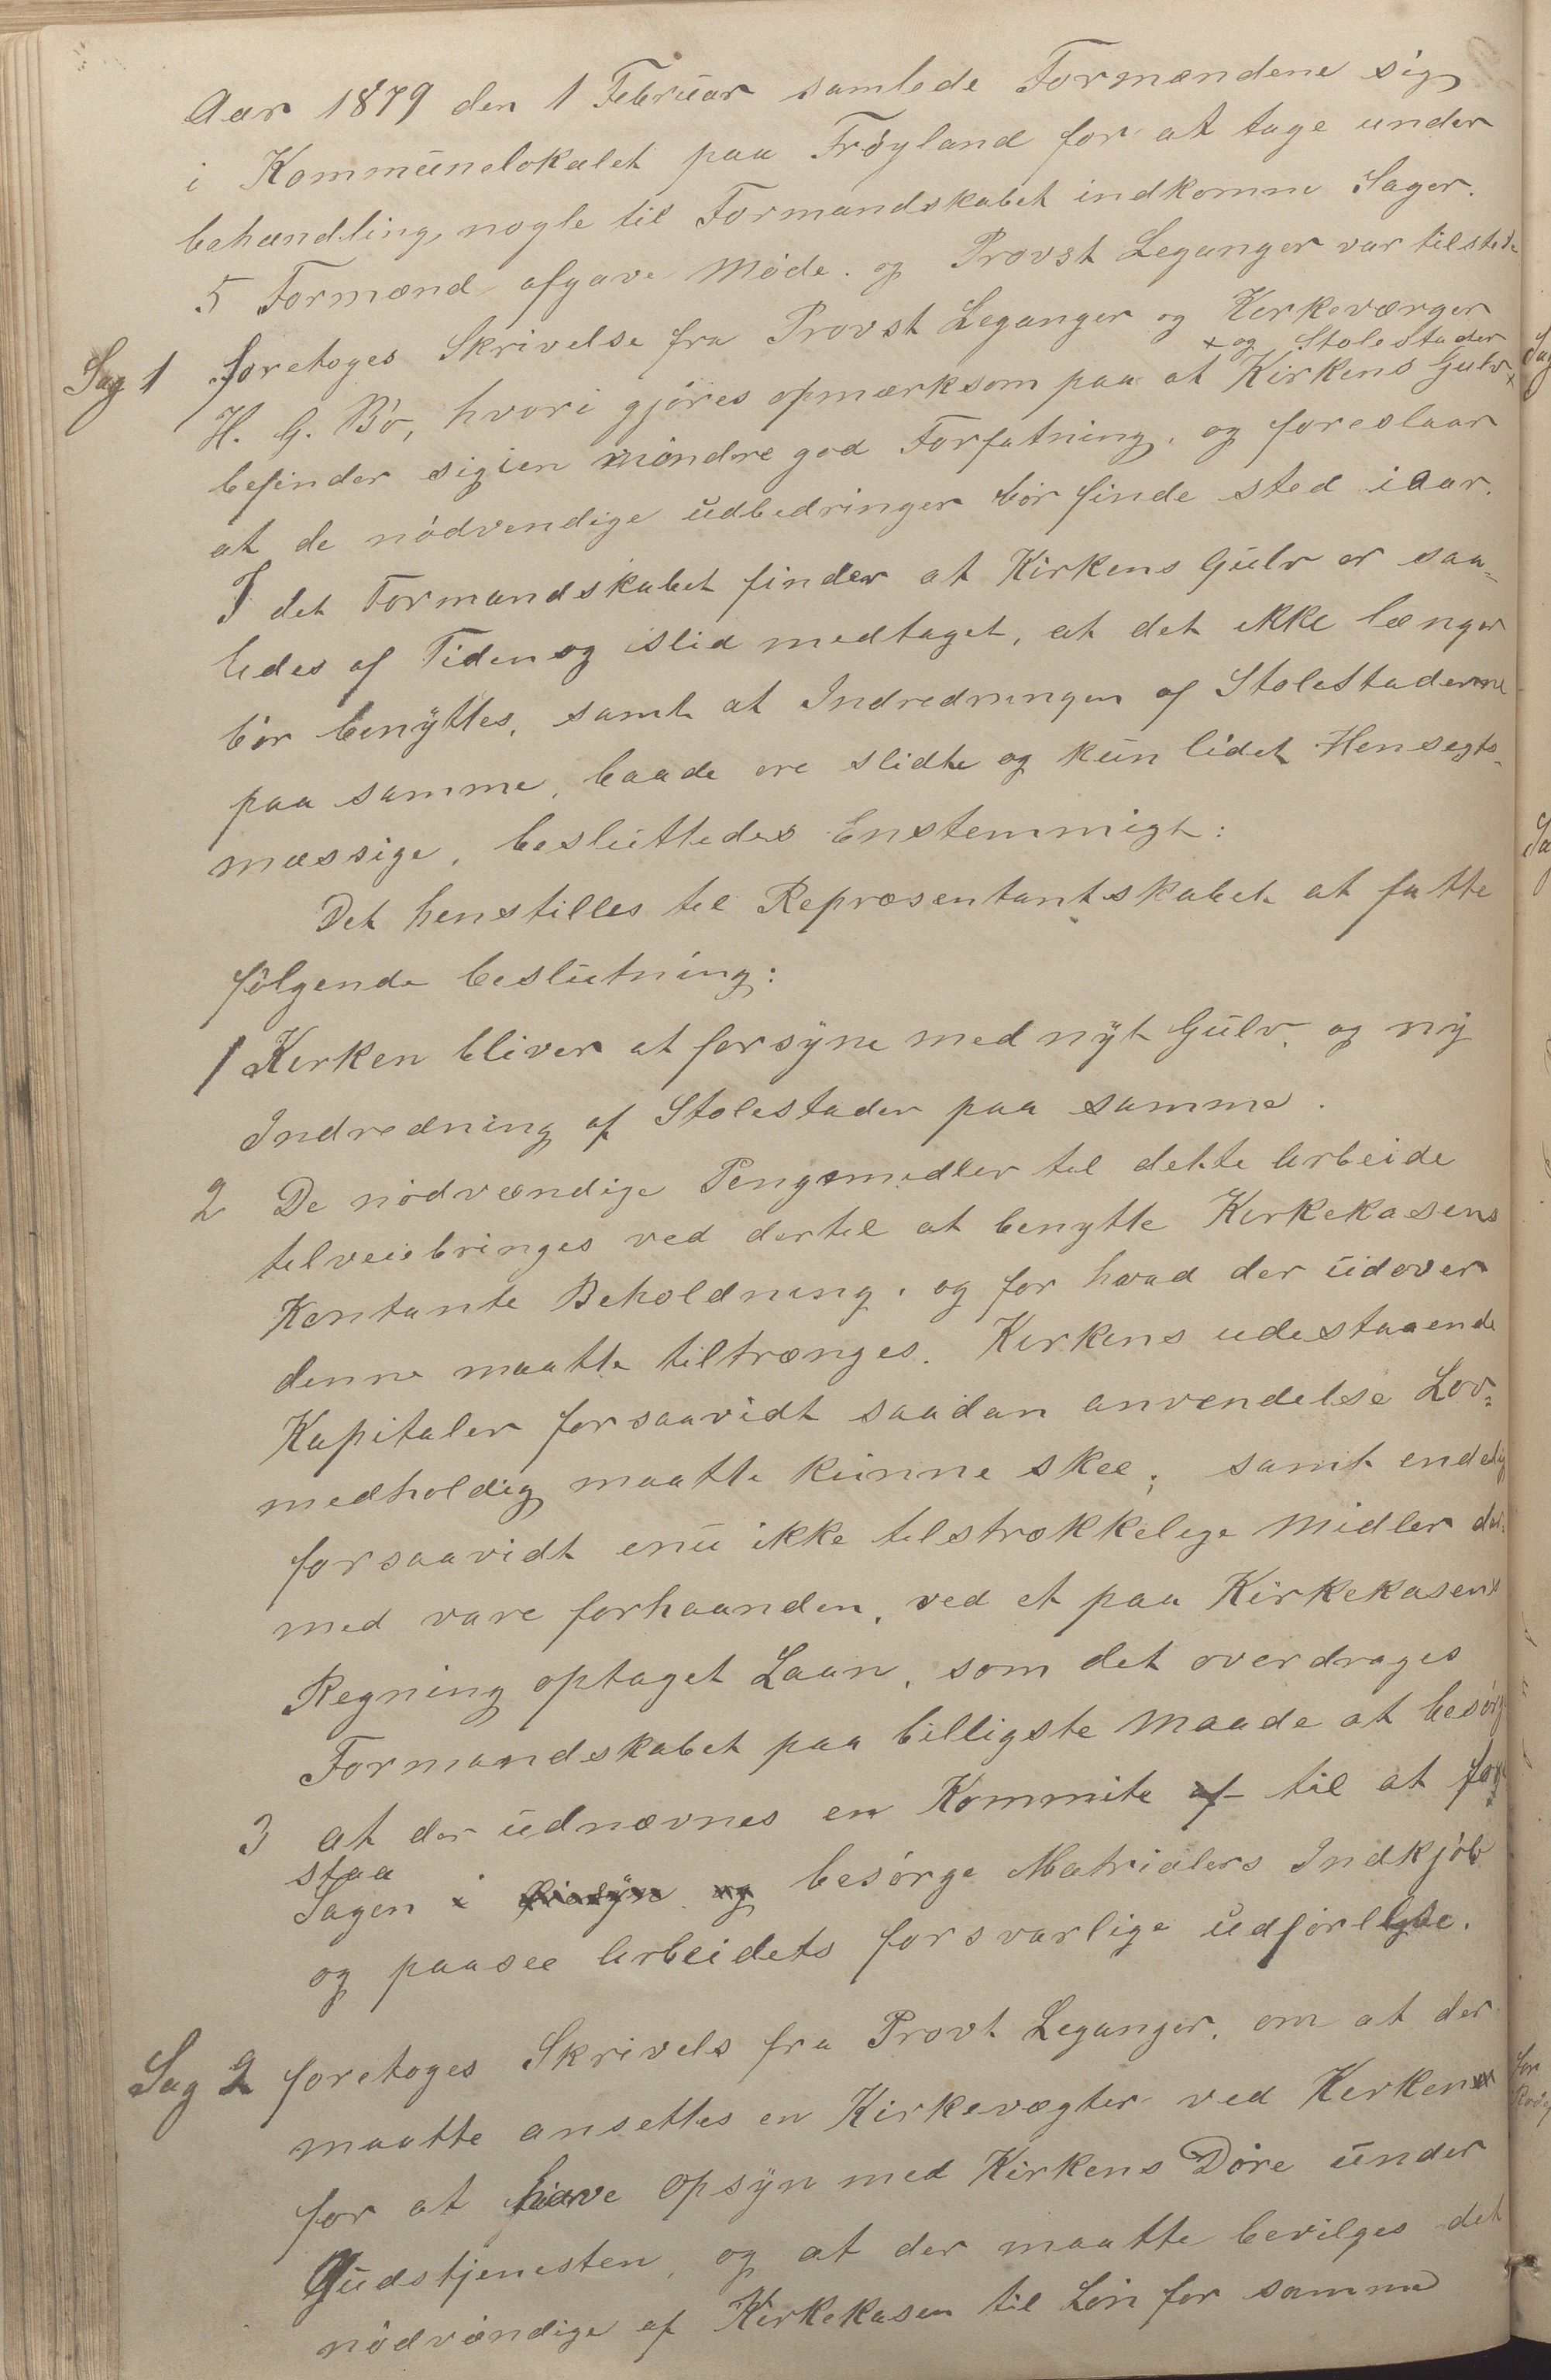 Aar 1879 den 1 Februar samlede Formændene sig
i Kommunelokalet paa Frøyland for at tage under
behandling, nogle til Formandskabet indkomne Sager.
5 Formænd afgave Møde. og Provst Leganger var tilstede
Sag 1 foretoges Skrivelse fra Provst Leganger og Kirkeværger
x og Stolestader
H. G. Bø, hvori gjøres opmærksom paa at Kirkens Gulv x
befinder sig i en mindre god Forfatning. og foreslaar
at de nødvendige udbedringer bør finde sted iaar.
I det Formandskabet finder at Kirkens Gulv er saa-
ledes af Tiden og slid medtaget, at det ikke længer
bør benyttes, samt at Indredningen af Stolestaderne
paa samme, baade ere slidte og kun lidet Hensegts-
mæssige, besluttedes Enstemmigt:
Det henstilles til Repræsentantskabet at fatte
følgende beslutning:
1 Kirken bliver at forsyne med nyt Gulv, og ny
Indredning af Stolestader paa samme.
2 De nødvændige Pengemidler til dette arbeide
tilveiebringes ved dertil at benytte Kirkekasens
Kontante Beholdning. og for hvad der udover
denne maatte tiltrænges. Kirkens udestaaende
Kapitaler forsaavidt saadan anvendelse Lov-
medholdig maatte kunne skee; samt endelig
forsaavidt enu ikke tilstrækkelige Midler der-
med vare forhaanden, ved et paa Kirkekasens
Regning optaget Laan, som det overdrages
Formandskabet paa billigste Maade at besørg
3 at der udnævnes en Kommite af til at fore
staa
Sagen i og besørge Matrialers Indkjøb
og paasee arbeidets forsvarlige udførelse.
Sag 2 foretoges Skrivels fra Provt Leganger, om at der
maatte ansettes en Kirkevægter ved Kirken
for at have opsyn med Kirkens Døre under
Gudstjenesten, og at der maatte bevilges det
nødvændige af Kirkekasen til Løn for samme